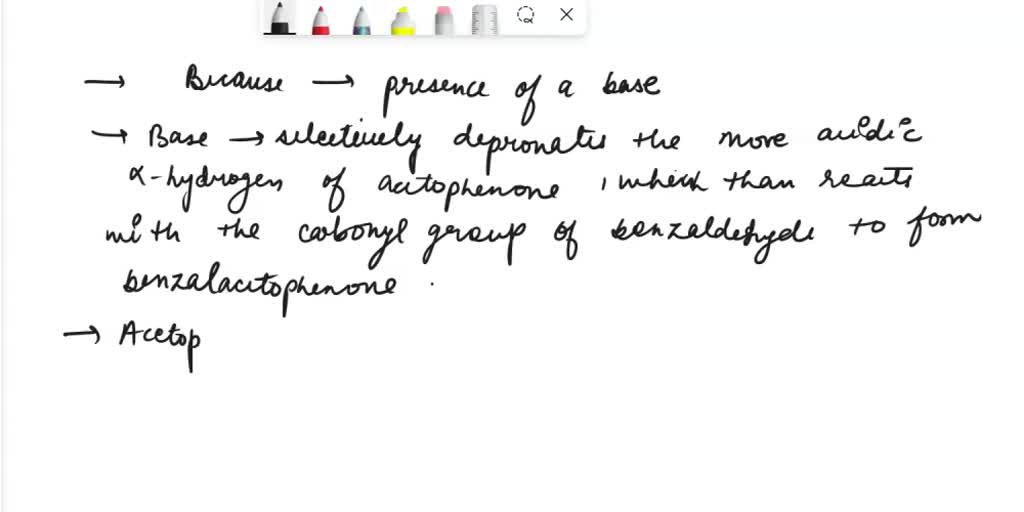 → Because → presence of a base
→ Base → selectively depronates the more acidic
α-hydrogen of acetophenone, which than reacts
with the carbonyl group of benzaldehyde to form
benzalacetophenone .
→ Acetop